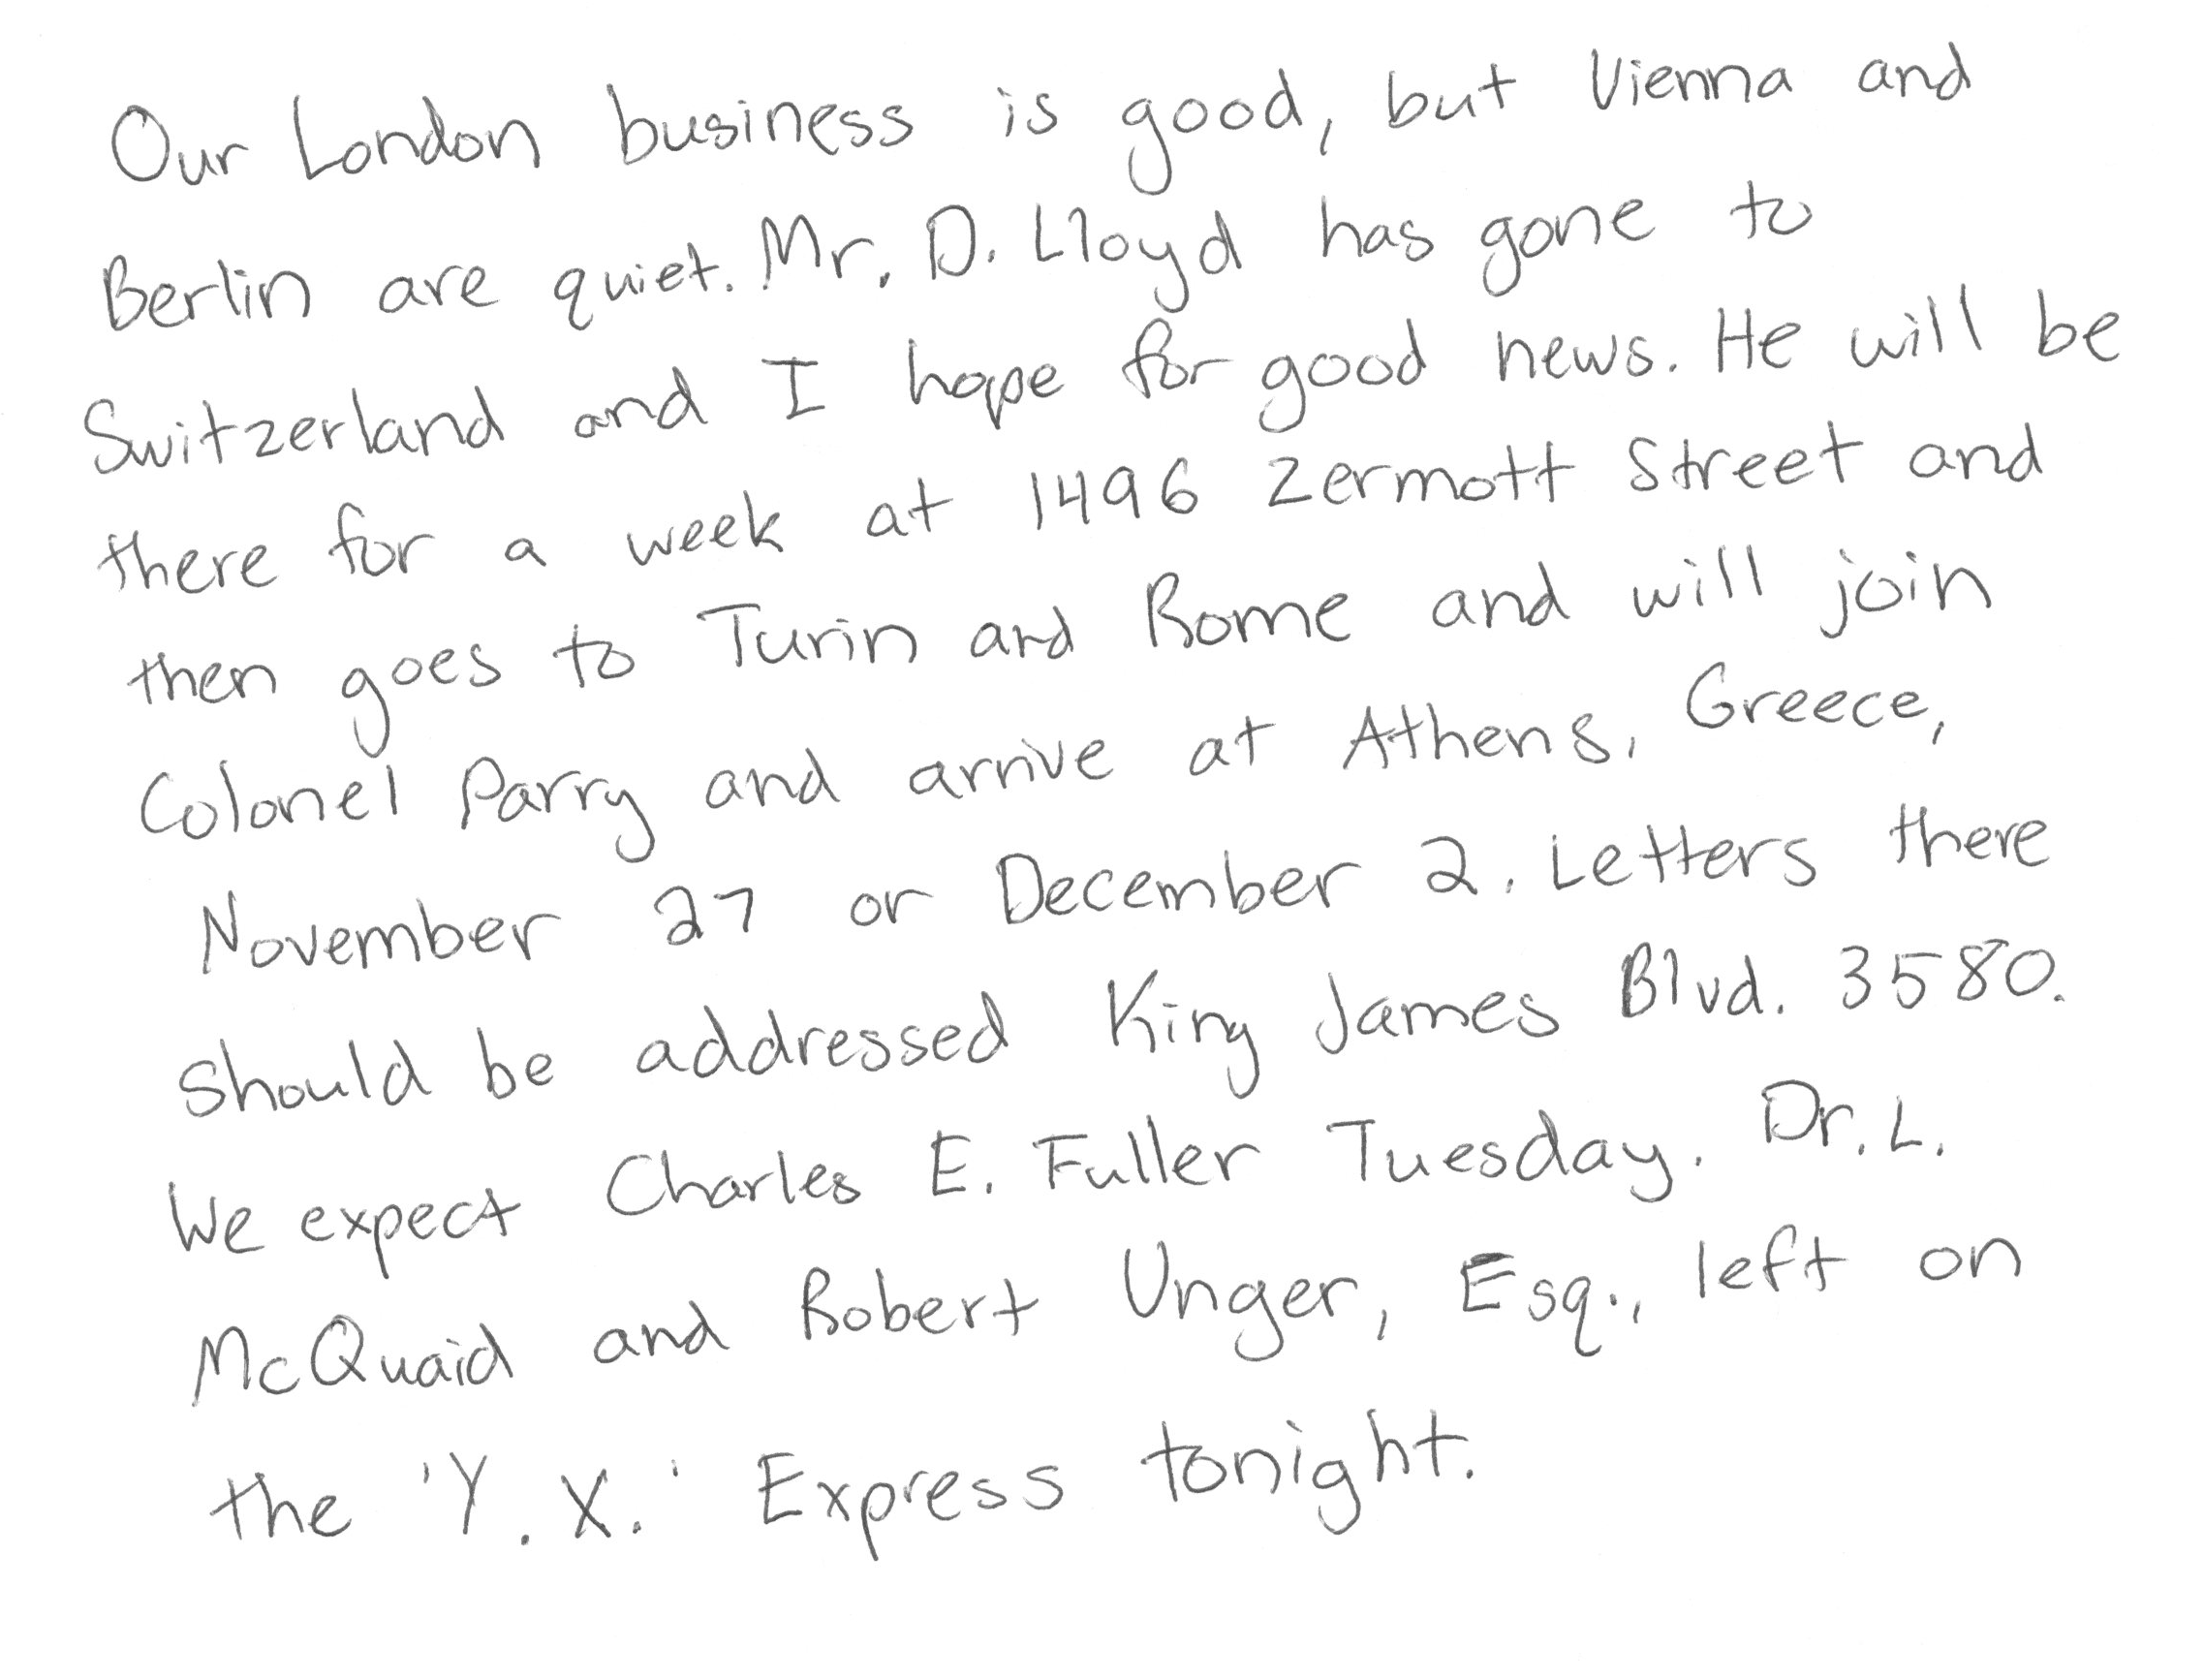 Our London business is good, but Vienna and
Berlin are quiet. Mr. D. Lloyd has gone to
Switzerland and I hope for good news. He will be
there for a week at 1496 Zermott Street and
then goes to Turin and Rome and will join
Colonel Parry and arrive at Athens, Greece,
November 27 or December 2. Letters there
should be addressed King James Blvd. 3580.
We expect Charles E. Fuller Tuesday. Dr. L.
McQuaid and Robert Unger, Esq., left on
the 'Y. X.' Express tonight.